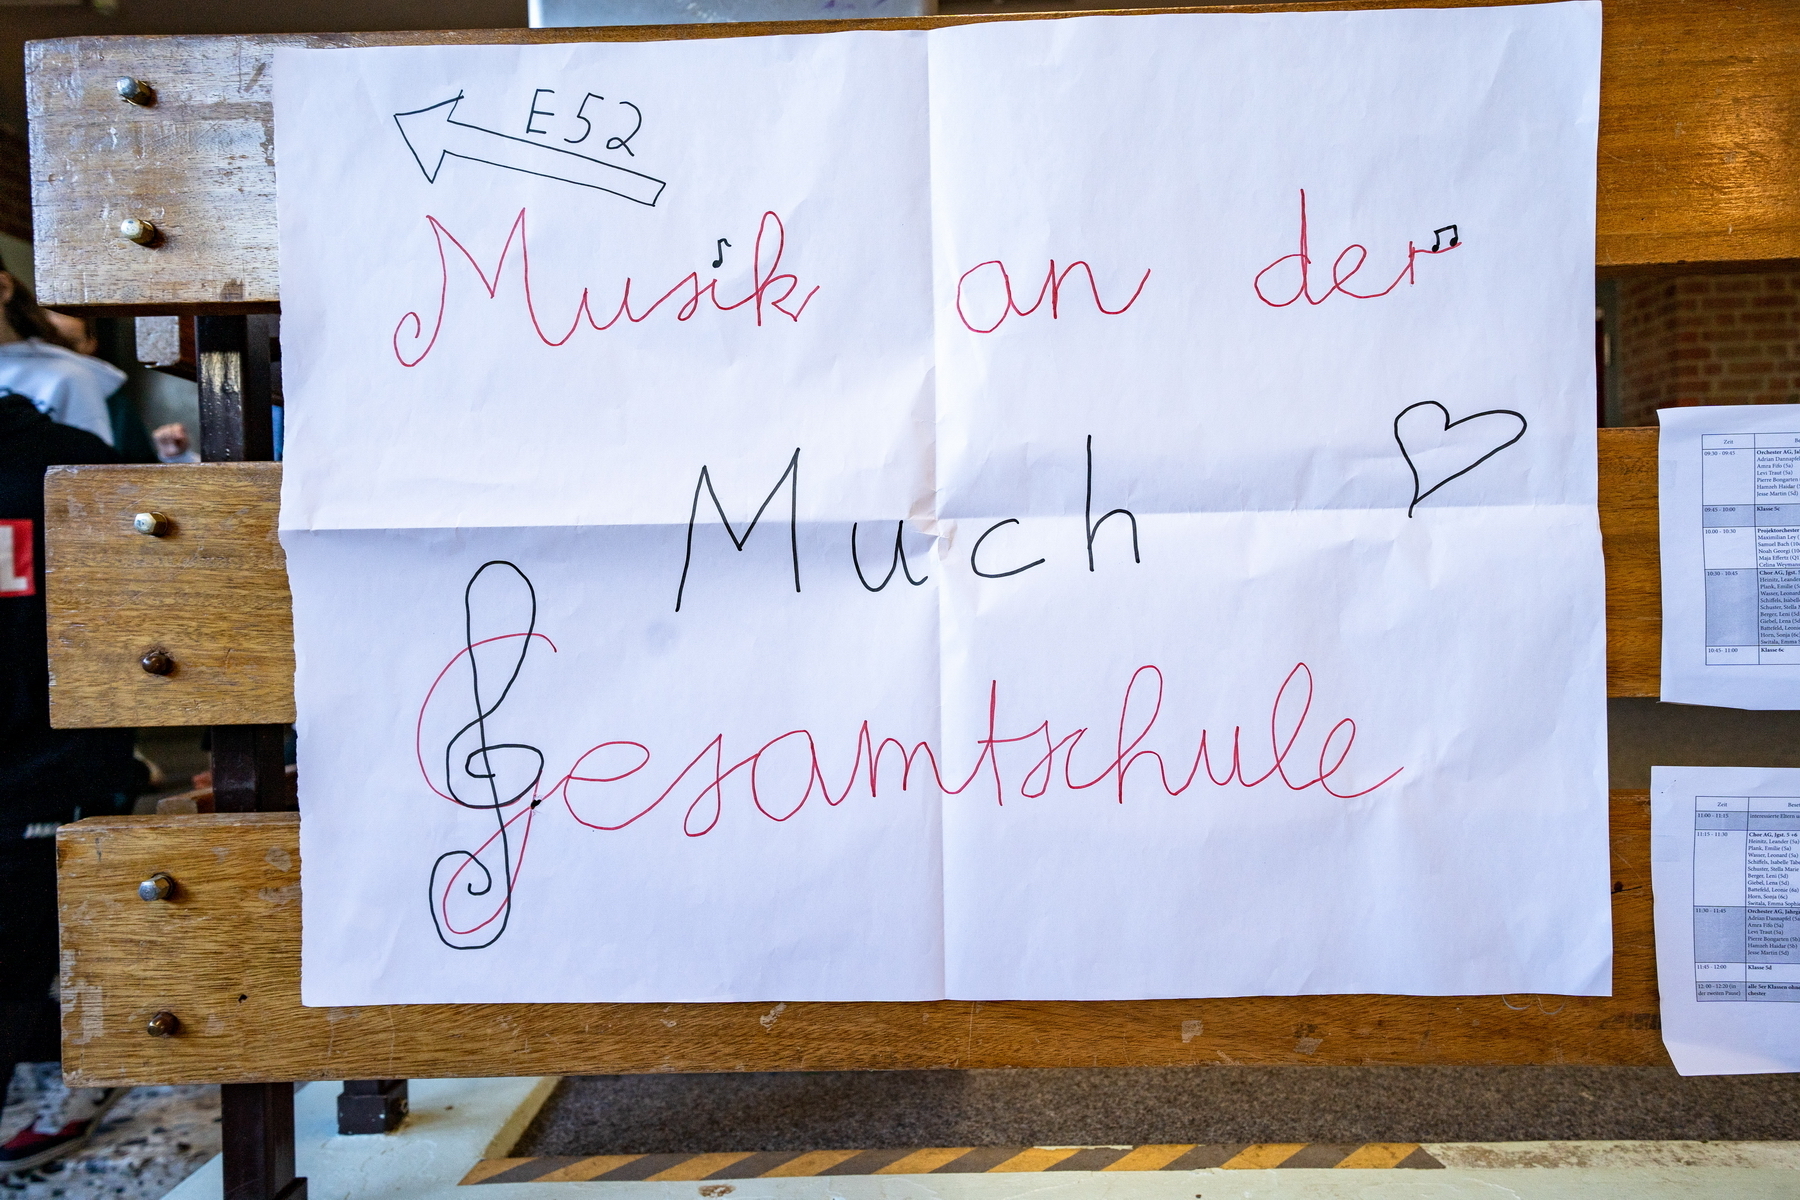 E52
Musik an der
Much
Gesamtschule
Zeit
09:30 - 09:45
Orchester AG,
Adrian Dannapfel
Amra Fifo (5a)
Levi Traut (5a)
Pierre Bongarten
Hamzeh Haidar
Jesse Martin (5d)
09:45 - 10:00 Klasse 5c
10:00 - 10:30
Projektorchester
Maximilian Ley
Samuel Bach
Noah Georgi
Maja Efferts (Q1)
Celina Weymans
10:30 - 10:45
Chor AG, Jgst.
Heinitz, Leander
Plank, Emilie
Wasser, Leonard
Schiffels, Isabelle
Schuster, Stella
Berger, Leni (5d)
Giebel, Lena (5d)
Battefeld, Leonie
Horn, Sonja (6c)
Switala, Emma
10:45 - 11:00 Klasse 6c
Zeit
11:00 - 11:15 interessierte Eltern
11:15 - 11:30
Chor AG, Jgst. 5 +6
Heinitz, Leander (5a)
Plank, Emilie (5a)
Wasser, Leonard (5a)
Schiffels, Isabelle
Schuster, Stella Marie
Berger, Leni (5d)
Giebel, Lena (5d)
Battefeld, Leonie (6a)
Horn, Sonja (6c)
Switala, Emma Sophie
11:30 - 11:45
Orchester AG,
Adrian Dannapfel
Amra Fifo (5a)
Levi Traut (5a)
Pierre Bongarten (5b)
Hamzeh Haidar (5b)
Jesse Martin (5d)
11:45 - 12:00 Klasse 5d
12:00 - 12:20 (in der zweiten Pause) alle 5er Klassen